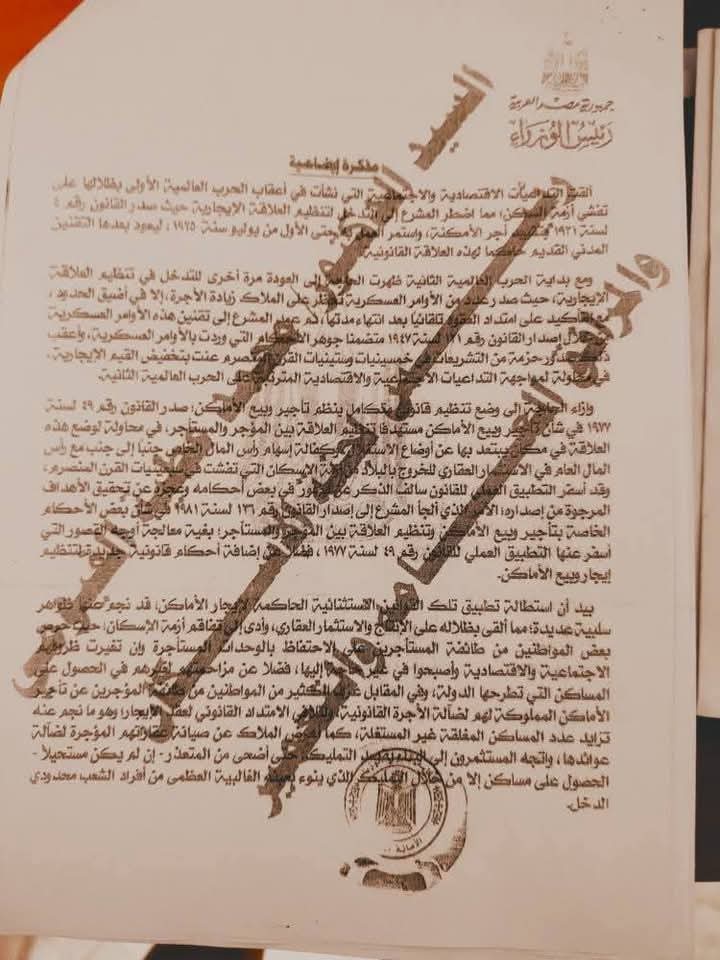 جمهورية مصر العربية
رئيس الوزراء
مذكرة إيضاحية
ألقت التداعيات الاقتصادية والاجتماعية التي نشأت في أعقاب الحرب العالمية الأولى بظلالها على
تفشي أزمة السكن؛ مما اضطر المشرع إلى التدخل لتنظيم العلاقة الإيجارية حيث صدر القانون رقم ٤
لسنة ١٩٢١ بتقييد أجر الأمكنة، واستمر العمل به حتى الأول من يوليو سنة ١٩٢٥، ليعود بعدها التقنين
المدني القديم حاكمًا لهذه العلاقة القانونية.
ومع بداية الحرب العالمية الثانية ظهرت الحاجة إلى العودة مرة أخرى للتدخل في تنظيم العلاقة
الإيجارية، حيث صدر عدد من الأوامر العسكرية تحظر على الملاك زيادة الأجرة، إلا في أضيق الحدود،
مع التأكيد على امتداد العقود تلقائيًا بعد انتهاء مدتها، ثم عمد المشرع إلى تقنين هذه الأوامر العسكرية
من خلال إصدار القانون رقم ١٢١ لسنة ١٩٤٧ متضمنًا جوهر الأحكام التي وردت بالأوامر العسكرية، وأعقب
ذلك صدور حزمة من التشريعات في خمسينيات وستينيات القرن المنصرم عنت بتخفيض القيم الإيجارية،
في محاولة لمواجهة التداعيات الاجتماعية والاقتصادية المترتبة على الحرب العالمية الثانية.
وإزاء الحاجة إلى وضع تنظيم قانوني متكامل ينظم تأجير وبيع الأماكن؛ صدر القانون رقم ٤٩ لسنة
١٩٧٧ في شأن تأجير وبيع الأماكن مستهدفًا تنظيم العلاقة بين المؤجر والمستأجر، في محاولة لوضع هذه
العلاقة في مكان يبتعد بها عن أوضاع الاستغلال وكفالة إسهام رأس المال الخاص جنبًا إلى جنب مع رأس
المال العام في الاستثمار العقاري للخروج بالبلاد من أزمة الإسكان التي تفشت في سبعينيات القرن المنصرم،
وقد أسفر التطبيق العملي للقانون سالف الذكر عن قصور في بعض أحكامه وعجزه عن تحقيق الأهداف
المرجوة من إصداره؛ الأمر الذي ألجأ المشرع إلى إصدار القانون رقم ١٣٦ لسنة ١٩٨١ في شأن بعض الأحكام
الخاصة بتأجير وبيع الأماكن وتنظيم العلاقة بين المؤجر والمستأجر؛ بغية معالجة أوجه القصور التي
أسفر عنها التطبيق العملي للقانون رقم ٤٩ لسنة ١٩٧٧، فضلًا عن إضافة أحكام قانونية جديدة لتنظيم
إيجار وبيع الأماكن.
بيد أن استطالة تطبيق تلك القوانين الاستثنائية الحاكمة لإيجار الأماكن؛ قد نجم عنها ظواهر
سلبية عديدة؛ مما ألقى بظلاله على الإنتاج والاستثمار العقاري، وأدى إلى تفاقم أزمة الإسكان؛ حيث حرص
بعض المواطنين من طائفة المستأجرين على الاحتفاظ بالوحدات المستأجرة وإن تغيرت ظروفهم
الاجتماعية والاقتصادية وأصبحوا في غير حاجة إليها، فضلًا عن مزاحمتهم لغيرهم في الحصول على
المساكن التي تطرحها الدولة، وفي المقابل عزف الكثير من المواطنين من طائفة المؤجرين عن تأجير
الأماكن المملوكة لهم لضآلة الأجرة القانونية، ولتلافي الامتداد القانوني لعقد الإيجار؛ وهو ما نجم عنه
تزايد عدد المساكن المغلقة غير المستغلة، كما أعرض الملاك عن صيانة عقاراتهم المؤجرة لضآلة
عوائدها، واتجه المستثمرون إلى البناء بقصد التمليك حتى أضحى من المتعذر- إن لم يكن مستحيلًا -
الحصول على مساكن إلا من خلال التمليك الذي ينوء بعبئه الغالبية العظمى من أفراد الشعب محدودي
الدخل.
الأمانة